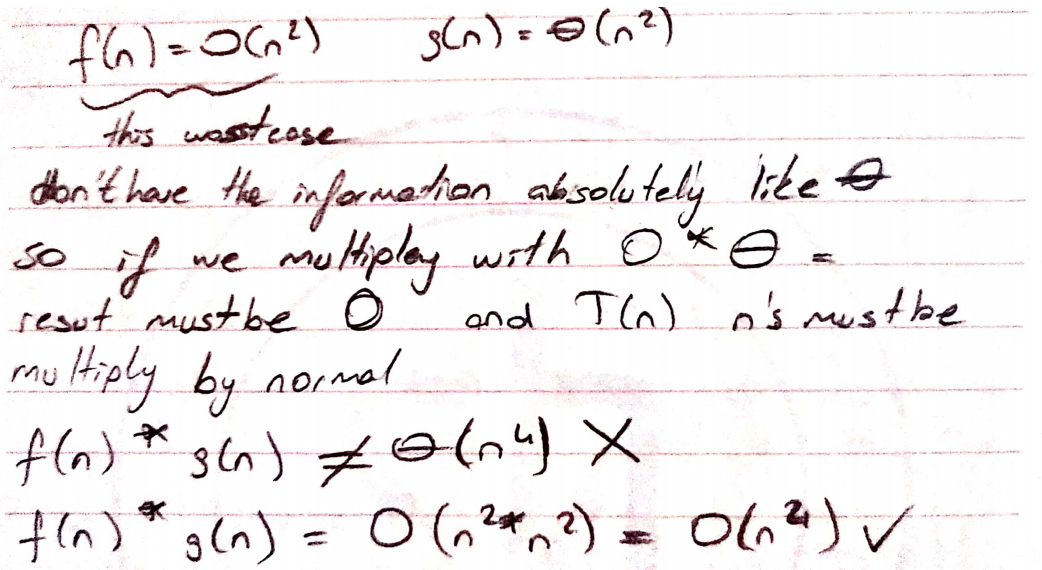 f(n) = O(n²) g(n) = Θ(n²)
this worstcase
don't have the information absolutely like Θ
so if we multiplay with O * Θ =
resut must be O and T(n) n's must be
multiply by normal
f(n) * g(n) ≠ Θ(n⁴) X
f(n) * g(n) = O(n² * n²) = O(n⁴) ✓